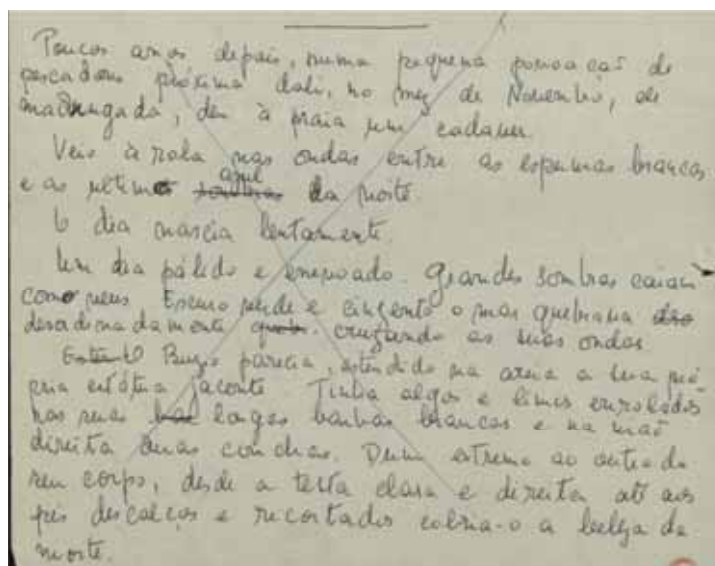 Poucos anos depois, numa pequena povoação de
pescadores próxima dali, no mez de Novembro, de
madrugada, deu à praia um cadaver.
Veio à rola nas ondas entre as espumas brancas
azul
e as ultimo sombras da noite.
O dia nascia lentamente.
Um dia pálido e enevoado. Grandes sombras caiam
como veus. Escuro verde e cinzento o mar quebrava
desordenadamente cruzando as suas ondas
Buzio parecia, estendido na areia a sua pró
pria estátua jacente. Tinha algas e limos enrolados
nas suas longas barbas brancas e na mão
direita duas conchas. Dum extremo ao outro do
seu corpo, desde a testa clara e direita até aos
pés descalços e recortados cobria-o a beleza da
morte.